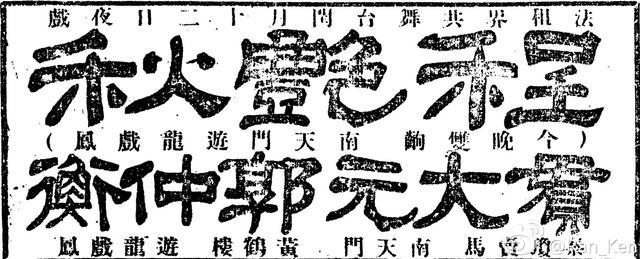 法租界共舞台閏月十二日夜戲
程艷秋
(今晚雙齣 南天門 遊龍戲鳳)
貫大元 郭仲衡
秦瓊賣馬 南天門 黃鶴樓 遊龍戲鳳